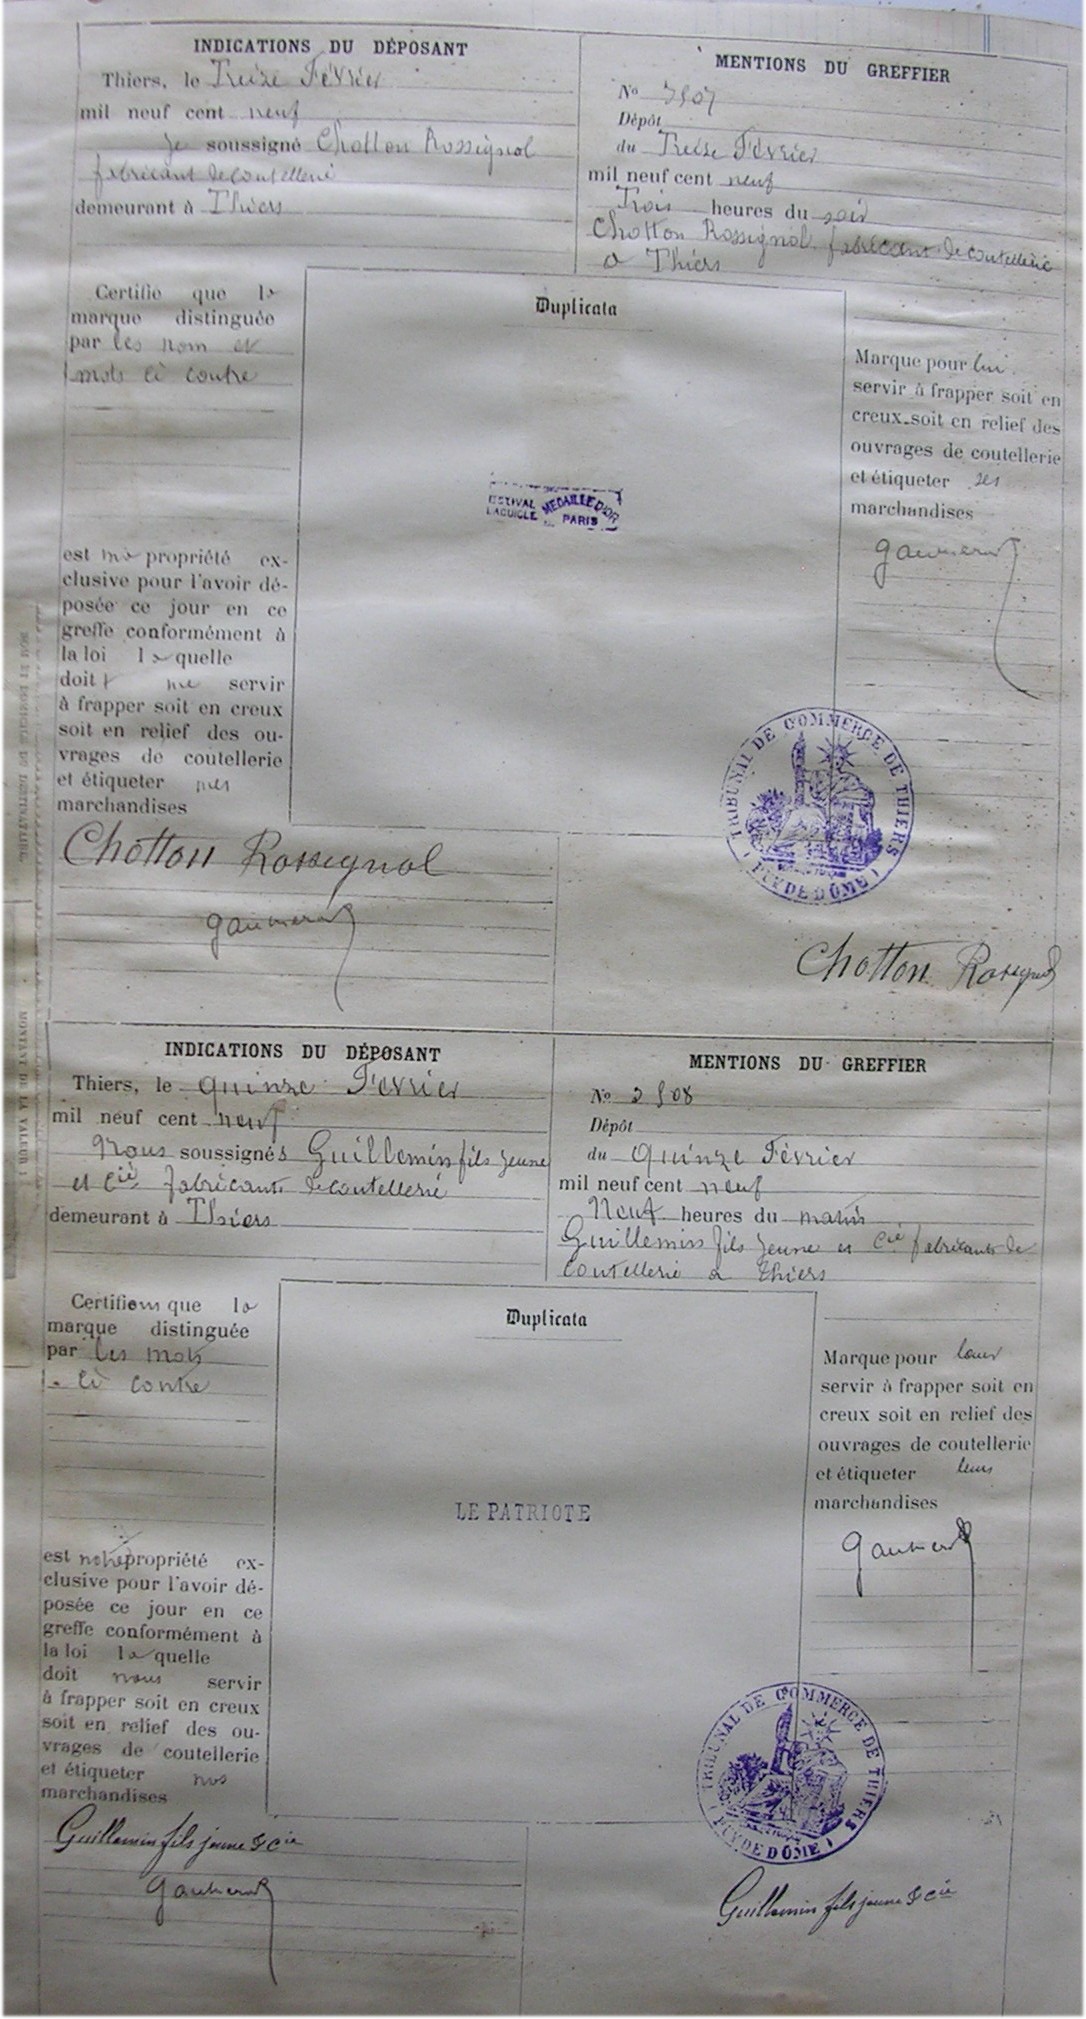 INDICATIONS DU DÉPOSANT
Thiers, le Treize Février
mil neuf cent neuf
Je soussigné Chotton Rossignol
fabricant de coutellerie
demeurant à Thiers
MENTIONS DU GREFFIER
No 2507
Dépôt
du Treize Février
mil neuf cent neuf
Trois heures du soir
Chotton Rossignol fabricant de coutellerie
à Thiers
Certifie que la
marque distinguée
par les nom et
mots ci contre
est ma propriété ex-
clusive pour l'avoir dé-
posée ce jour en ce
greffe conformément à
la loi laquelle
doit me servir
à frapper soit en creux
soit en relief des ou-
vrages de coutellerie
et étiqueter mes
marchandises
Chotton Rossignol
Duplicata
ESTIVAL MEDAILLE D'OR
LAGUIOLE PARIS
Marque pour lui
servir à frapper soit en
creux soit en relief des
ouvrages de coutellerie
et étiqueter ses
marchandises
TRIBUNAL DE COMMERCE DE THIERS
(PUY DE DÔME)
Chotton Rossignol
NOM ET DOMICILE DU DESTINATAIRE.
MONTANT DE LA VALEUR
INDICATIONS DU DÉPOSANT
Thiers, le quinze Février
mil neuf cent neuf
Nous soussignés Guillemin fils jeune
et Cie fabricants de coutellerie
demeurant à Thiers
MENTIONS DU GREFFIER
No 2508
Dépôt
du Quinze Février
mil neuf cent neuf
Neuf heures du matin
Guillemin fils jeune et Cie fabricants de
coutellerie à Thiers
Certifions que la
marque distinguée
par les mots
ci contre
est notre propriété ex-
clusive pour l'avoir dé-
posée ce jour en ce
greffe conformément à
la loi laquelle
doit nous servir
à frapper soit en creux
soit en relief des ou-
vrages de coutellerie
et étiqueter nos
marchandises
Guillemin fils jeune & Cie
Duplicata
LE PATRIOTE
Marque pour leur
servir à frapper soit en
creux soit en relief des
ouvrages de coutellerie
et étiqueter leurs
marchandises
TRIBUNAL DE COMMERCE DE THIERS
(PUY DE DÔME)
Guillemin fils jeune & Cie